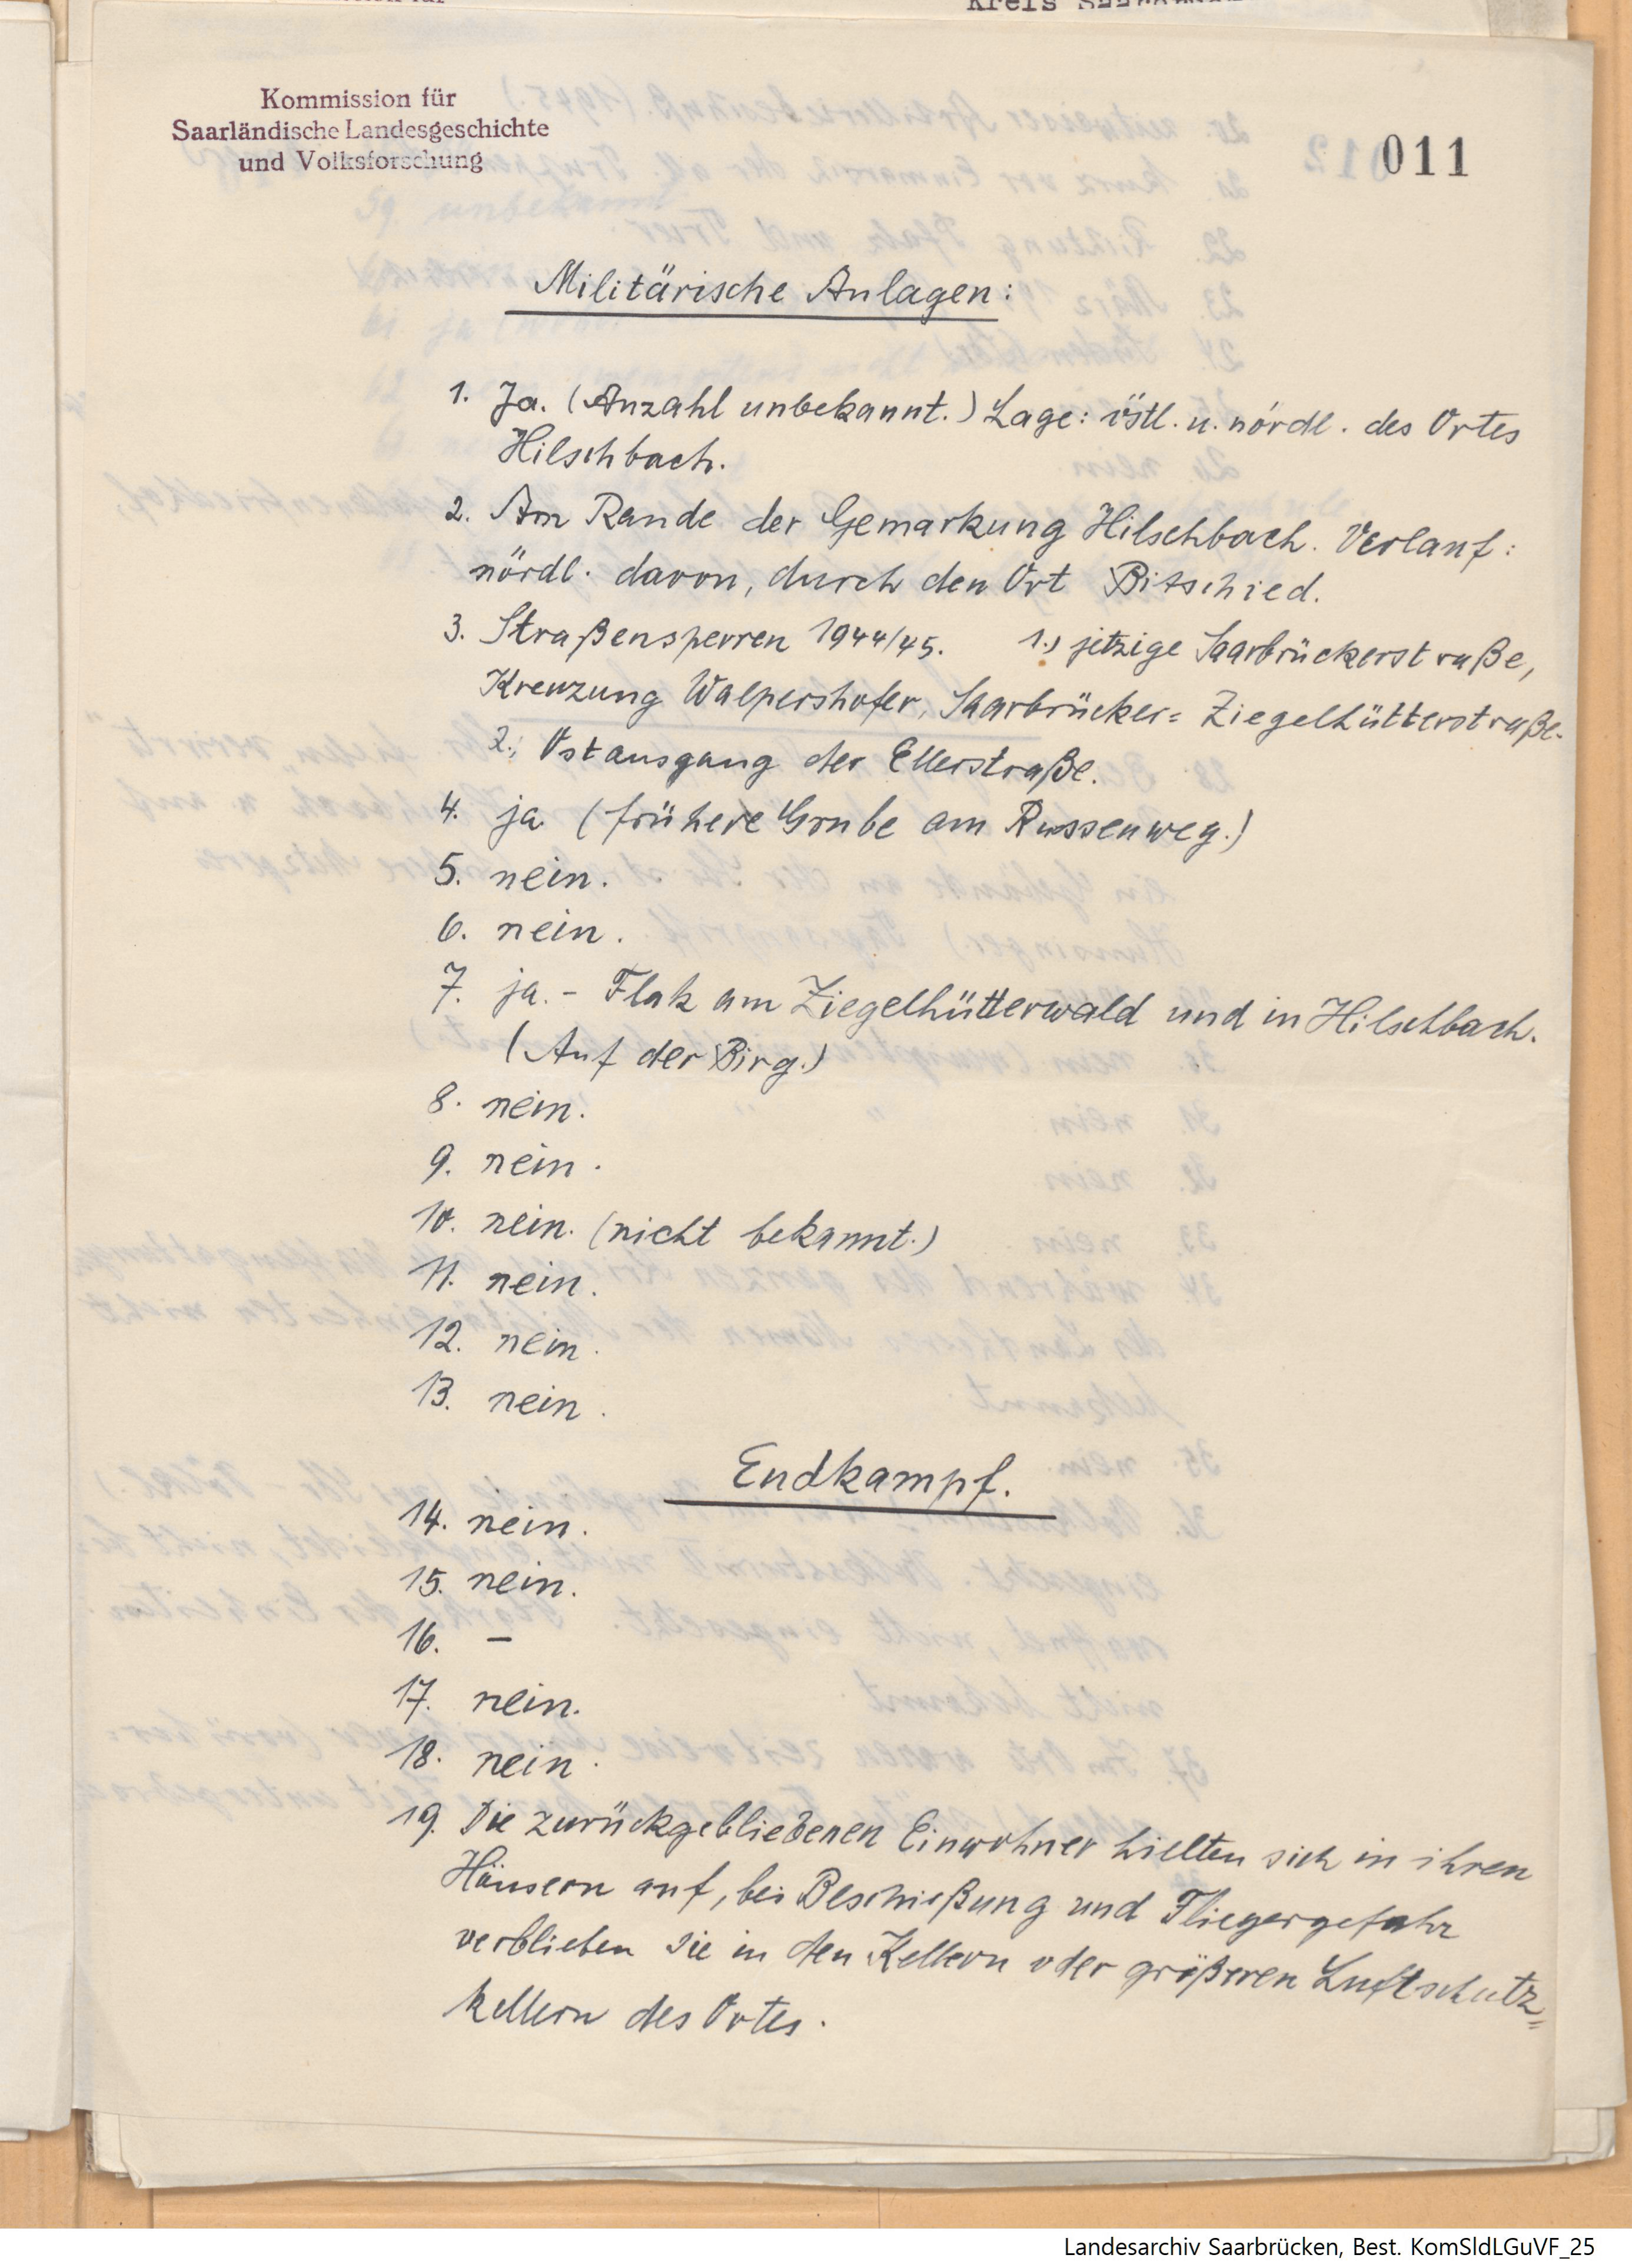 Kommission für
Saarländische Landesgeschichte
und Volksforschung
011
Militärische Anlagen:
1. Ja. (Anzahl unbekannt.) Lage: östl. u. nördl. des Ortes
Hilschbach.
2. Am Rande der Gemarkung Hilschbach. Verlauf:
nördl. davon, durch den Ort Bitschied.
3. Straßensperren 1944/45. 1., jetzige Saarbrückerstraße,
Kreuzung Walpershofer, Saarbrücker= Ziegelhütterstraße.
2., Ostausgang der Ellerstraße.
4. ja. (frühere Grube am Russenweg.)
5. nein.
6. nein.
7. ja. - Flak am Ziegelhütterwald und in Hilschbach.
(Auf der Birg.)
8. nein.
9. nein.
10. nein. (nicht bekannt.)
11. nein.
12. nein.
13. nein.
Endkampf.
14. nein.
15. nein.
16. –
17. nein.
18. nein.
19. Die zurückgebliebenen Einwohner hielten sich in ihren
Häusern auf, bei Beschießung und Fliegergefahr
verblieben sie in den Kellern oder größeren Luftschutz=
kellern des Ortes.
Landesarchiv Saarbrücken, Best. KomSldLGuVF_25